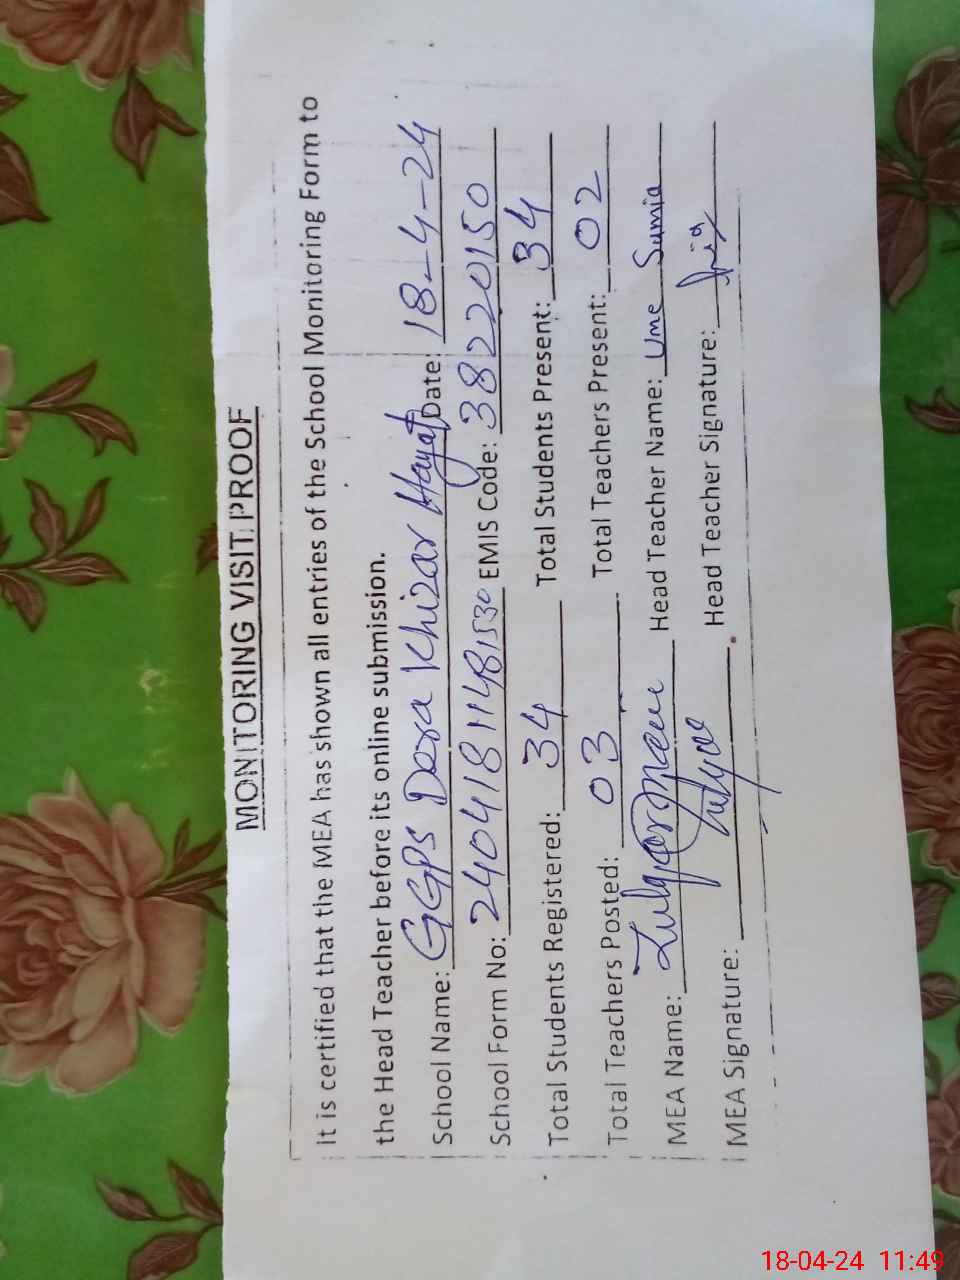 MONITORING VISIT PROOF
It is certified that the MEA has shown all entries of the School Monitoring Form to
the Head Teacher before its online submission.
School Name: GGPS Dera Khizar Hayat Date: 18-4-24
School Form No: 24041811481530 EMIS Code: 38220150
Total Students Registered: 34 Total Students Present: 34
Total Teachers Posted: 03 Total Teachers Present: 02
MEA Name: Head Teacher Name: Ume Sumia
MEA Signature: Head Teacher Signature:
18-04-24 11:49